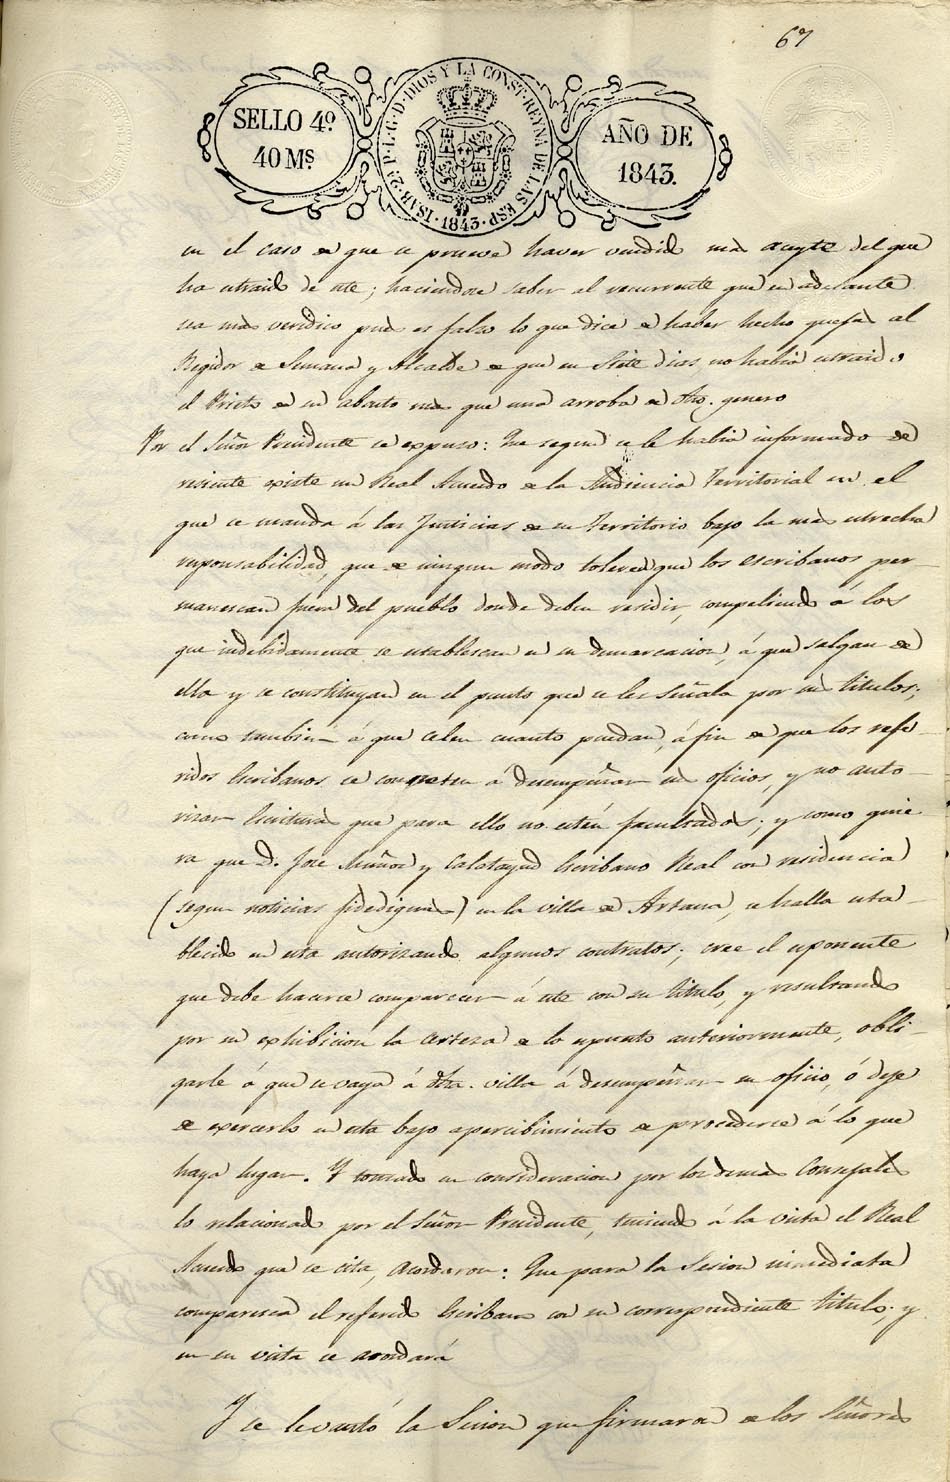 67
SELLO 4º
40 Ms.
ISAB. 2ª P. L. G. D. DIOS Y LA CONST. REYNA DE LAS ESP. 1843.
AÑO DE
1843.
en el caso de que se prueve haver vendido mas aceyte del que
ha estraido de este; haciendose saber al recurrente que en adelante
sea mas veridico pues es falso lo que dice de haber hecho quejas al
Regidor de Semana y Alcalde de que en Siete dias no habia estraido
el Prieto de su abasto mas que una arroba de dho. genero
Por el Señor Presidente se expuso: Que segun se le habia informado de
reciente existe un Real Acuerdo de la Audiencia Territorial en el
que se manda á las Justicias de su Territorio bajo la mas estrecha
responsabilidad, que de ningun modo toleren que los escribanos per-
manescan fuera del pueblo donde deben residir, compeliendo á los
que indebidamente se establescan en su demarcacion, á que salgan de
ella y se constituyan en el punto que se les señala por sus titulos;
como tambien á que celen cuanto puedan, á fin de que los refe-
ridos Escribanos se concreten á desempeñar sus oficios, y no auto-
rizar Escrituras que para ello no estén facultados; y como quie-
ra que D. José Muñoz y Calatayud Escribano Real con residencia
(segun noticias fidedignas) en la villa de Artana, se halla esta-
blecido en esta autorizando algunos contratos; cree el esponente
que debe hacerse comparecer á este con su titulo, y resultando
por su exhibicion la certeza de lo espuesto anteriormente, obli-
garle á que se vaya á dha. villa á desempeñar su oficio, ó deje
de exercerlo en esta bajo apercibimiento de procederse á lo que
haya lugar. Y tomado en consideracion por los demas Consejales
lo relacionado por el Señor Presidente, teniendo á la vista el Real
Acuerdo que se cita, acordaron: Que para la Sesion inmediata
comparesca el referido Escribano con su correspondiente titulo; y
en su vista se acordará
Y se levantó la Sesion que firmaron de los Señores